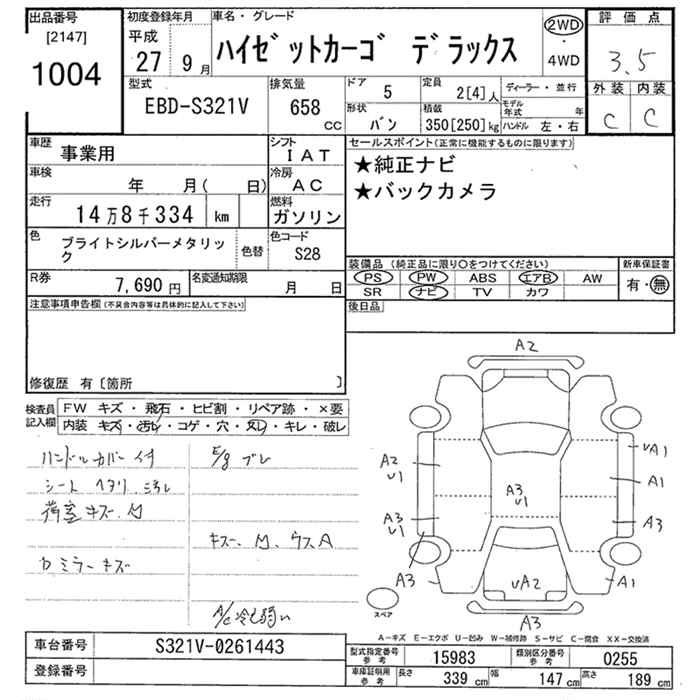 出品番号
[2147]
1004
初度登録年月
平成
27 9月
車名・グレード
ハイゼットカーゴ デラックス
2WD
・
4WD
評価点
3.5
外装 内装
C C
型式
EBD-S321V
排気量
658
CC
ドア
5
定員
2[4]人
ディーラー・並行
形状
バン
積載
350[250]kg
モデル年式 年
ハンドル 左・右
車歴
事業用
シフト
IAT
車検
年 月( 日)
冷房
AC
走行
14万8千334 km
燃料
ガソリン
色
ブライトシルバーメタリック
色替
色コード
S28
R券
7,690円
名変通知期限
月 日
セールスポイント(正常に機能するものに限ります)
★純正ナビ
★バックカメラ
装備品 (純正品に限り○をつけてください)
PS PW ABS エアB AW
SR ナビ TV カワ
新車保証書
有・無
後日品
注意事項申告欄(不具合内容等は具体的に記入して下さい)
修復歴 有〔箇所 〕
検査員
記入欄
FW キズ・飛石・ヒビ割・リペア跡・×要
内装 キズ・汚レ・コゲ・穴・スレ・キレ・破レ
ハンドルカバー付
シート ヘタリ、ヨゴレ
荷室キズ、凹
カミラーキズ
E/g ブレ
キズ、凹、ウスA
A/C 冷え弱い
A2
A2
U1
A3
U1
A3
A3
U1
UA1
A1
A3
A1
UA2
A3
スペア
A-キズ E-エクボ U-凹み W-補修跡 S-サビ C-腐食 XX-交換済
車台番号
S321V-0261443
登録番号
型式指定番号
参考
15983
類別区分番号
参考
0255
車庫証明用
参考
長さ
339 cm
幅
147 cm
高さ
189 cm